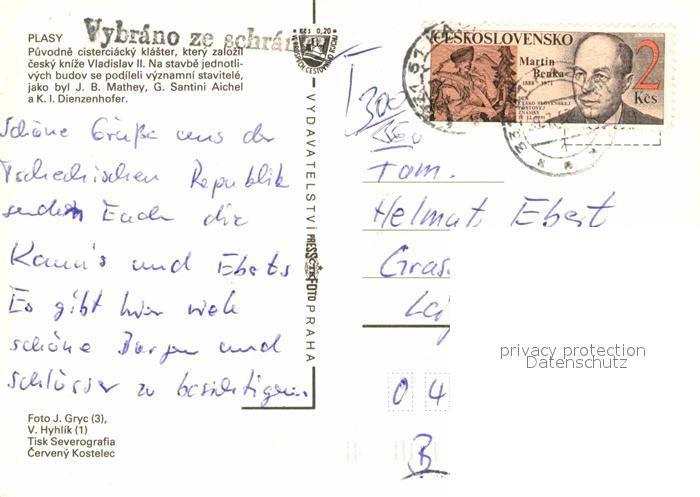 PLASY
Vybráno ze schrán
Původně cisterciácký klášter, který založil
český kníže Vladislav II. Na stavbě jednotli-
vých budov se podíleli významní stavitelé,
jako byl J. B. Mathey, G. Santini Aichel
a K. I. Dienzenhofer.
Schöne Grüße aus der
Tschechischen Republik
senden Euch die
Kamm's und Eberts
Es gibt hier viele
schöne Burgen und
Schlösser zu besichtigen.
Foto J. Gryc (3),
V. Hyhlík (1)
Tisk Severografia
Červený Kostelec
Kčs 0,20
VYDAVATELSTVÍ PRESSFOTO PRAHA
ČESKOSLOVENSKO
Martin
Benka
1888 - 1971
DEN
ČESKO-SLOVENSKEJ
POŠTOVEJ
ZNÁMKY
18.12.1992
2
Kčs
T300
Fam.
Helmut Ebert
Gras
04
privacy protection
Datenschutz